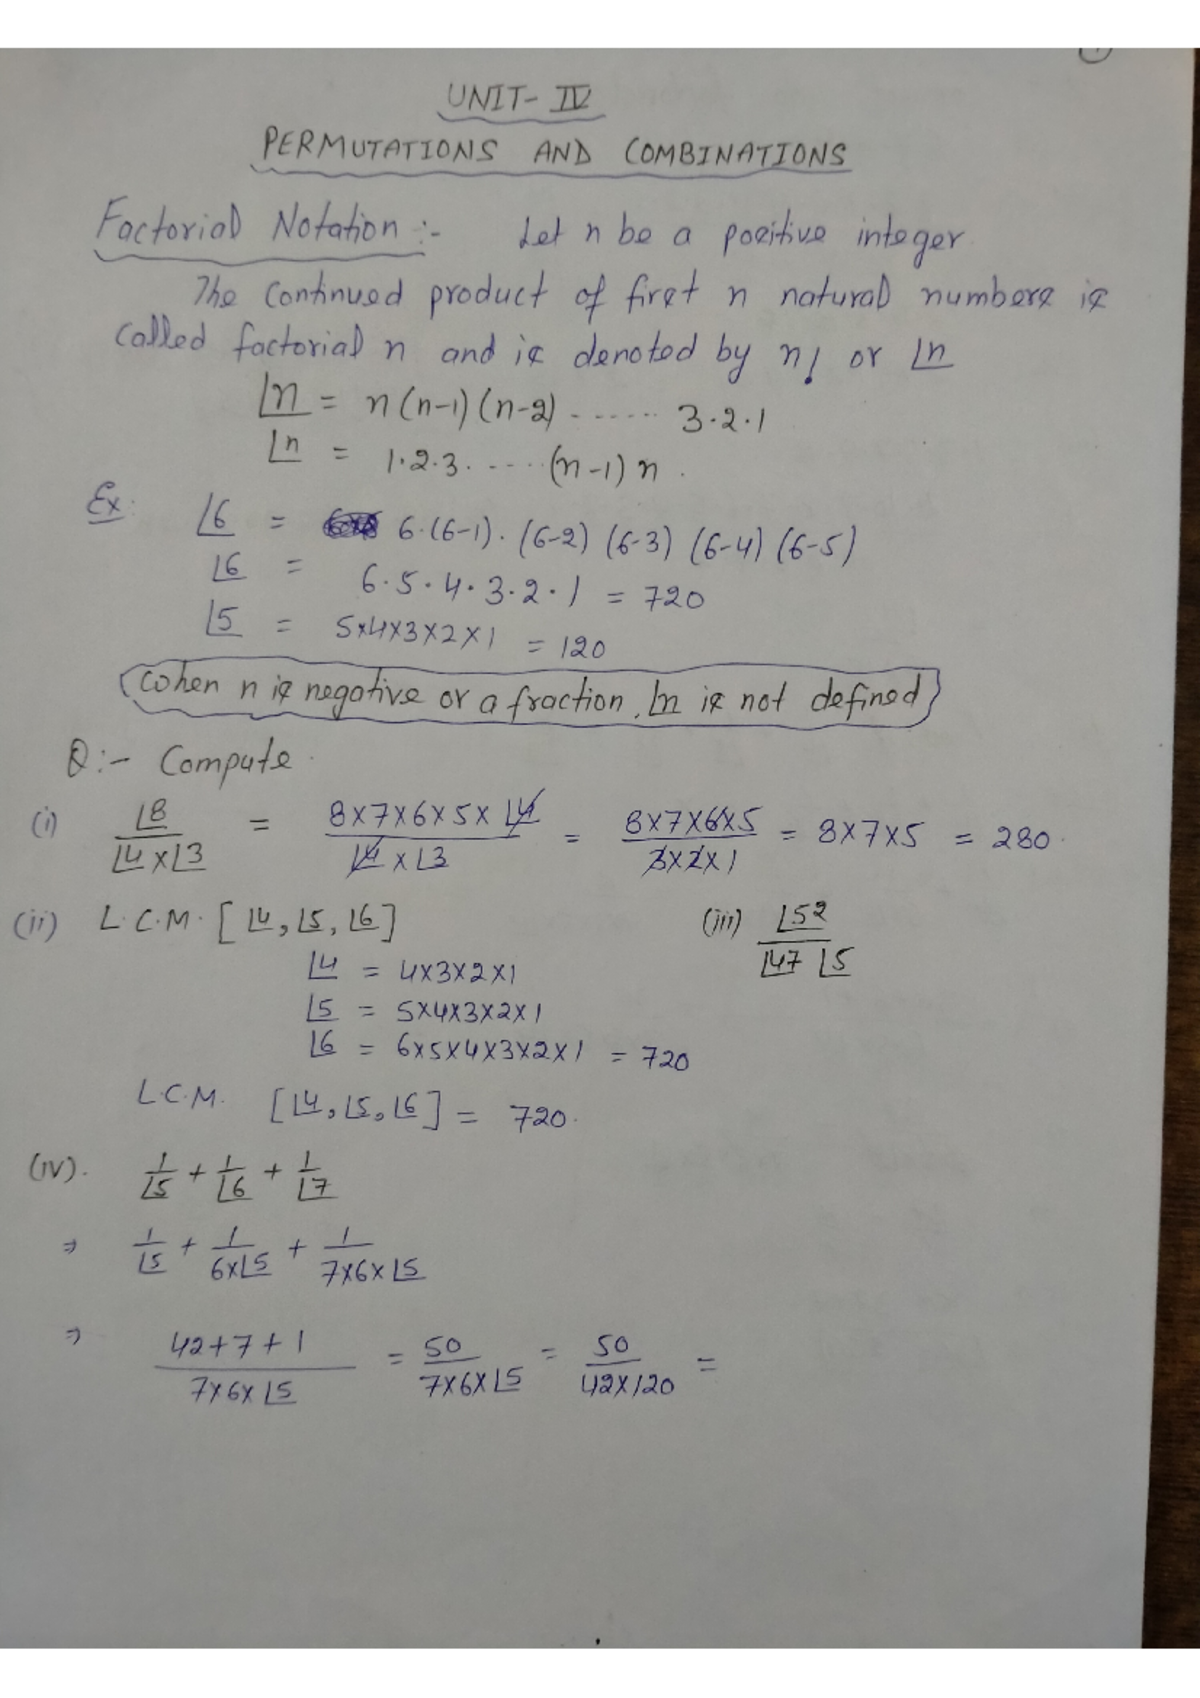 UNIT- IV
PERMUTATIONS AND COMBINATIONS
Factorial Notation :- Let n be a positive integer
The continued product of first n natural numbers is
called factorial n and is denoted by n! or ⌊n
⌊n = n(n-1)(n-2) ------ 3.2.1
⌊n = 1.2.3. ---- (n-1) n .
Ex: ⌊6 = 6.(6-1).(6-2)(6-3)(6-4)(6-5)
⌊6 = 6.5.4.3.2.1 = 720
⌊5 = 5×4×3×2×1 = 120
When n is negative or a fraction, ⌊n is not defined
Q:- Compute
(i) ⌊8 / ⌊4 × ⌊3 = 8×7×6×5×⌊4 / ⌊4 × ⌊3 = 8×7×6×5 / 3×2×1 = 8×7×5 = 280
(ii) L.C.M. [⌊4, ⌊5, ⌊6] (iii) ⌊52 / ⌊47 ⌊5
⌊4 = 4×3×2×1
⌊5 = 5×4×3×2×1
⌊6 = 6×5×4×3×2×1 = 720
L.C.M. [⌊4, ⌊5, ⌊6] = 720.
(iv). 1/⌊5 + 1/⌊6 + 1/⌊7
⇒ 1/⌊5 + 1/6×⌊5 + 1/7×6×⌊5
⇒ 42+7+1 / 7×6×⌊5 = 50 / 7×6×⌊5 = 50 / 42×120 =